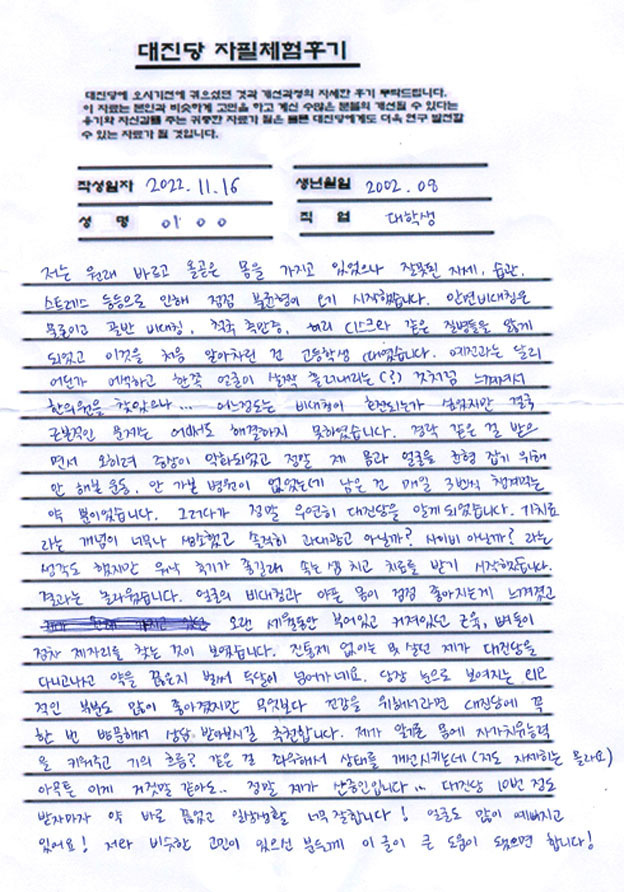 대진당 자필체험후기
대진당에 오시기전에 겪으셨던 것과 개선과정의 자세한 후기 부탁드립니다.
이 자료는 본인과 비슷하게 고민을 하고 계신 수많은 분들의 개선될 수 있다는
용기와 자신감를 주는 귀중한 자료가 될은 물론 대진당에게도 더욱 연구 발전할
수 있는 자료가 될 것입니다.
작성일자 2022. 11. 16 생년월일 2002. 08
성 명 이ㅇㅇ 직 업 대학생
저는 원래 바르고 올곧은 몸을 가지고 있었으나 잘못된 자세, 습관,
스트레스 등등으로 인해 점점 불균형이 오기 시작했습니다. 안면비대칭은
물론이고 골반 비대칭, 척추 측만증, 허리 디스크와 같은 질병들을 앓게
되었고 이것을 처음 알아차린 건 고등학생 때였습니다. 예전과는 달리
어딘가 어색하고 한쪽 얼굴이 살짝 흘러내리는(?) 것처럼 느껴져서
한의원을 찾았으나... 어느정도는 비대칭이 호전되는가 싶었지만 결국
근본적인 문제는 어디에서도 해결하지 못하였습니다. 경락 같은 걸 받으
면서 오히려 증상이 악화되었고 정말 제 몸과 얼굴을 균형 잡기 위해
안 해본 운동, 안 가본 병원이 없었는데 남은 건 매일 3번씩 챙겨먹는
약 뿐이었습니다. 그러다가 정말 우연히 대진당을 알게 되었습니다. 기치료
라는 개념이 너무나 생소했고 솔직히 과대광고 아닐까? 사이비 아닐까? 라는
생각도 했지만 워낙 후기가 좋길래 속는 셈 치고 치료를 받기 시작했습니다.
결과는 놀라웠습니다. 얼굴의 비대칭과 아픈 몸이 점점 좋아지는게 느껴졌고
오랜 세월동안 묵어있고 커져있던 근육, 뼈들이
점차 제자리를 찾는 것이 보였습니다. 진통제 없이는 못 살던 제가 대진당을
다니고나고 약을 끊은지 벌써 두달이 넘어가네요. 당장 눈으로 보여지는 외모
적인 부분도 많이 좋아졌지만 무엇보다 건강을 위해서라면 대진당에 꼭
한 번 방문해서 상담 받아보시길 추천합니다. 제가 알기론 몸에 자가치유능력
을 키워주고 기의 흐름? 같은 걸 좌우해서 상태를 개선시키는데 (저도 자세히는 몰라요)
아무튼 이게 거짓말 같아도.. 정말 제가 산증인입니다... 대진당 10번 정도
받자마자 약 바로 끊었고 일상생활 너무 잘합니다! 얼굴도 많이 예뻐지고
있어요! 저랑 비슷한 고민이 있으신 분들께 이 글이 큰 도움이 됐으면 합니다!